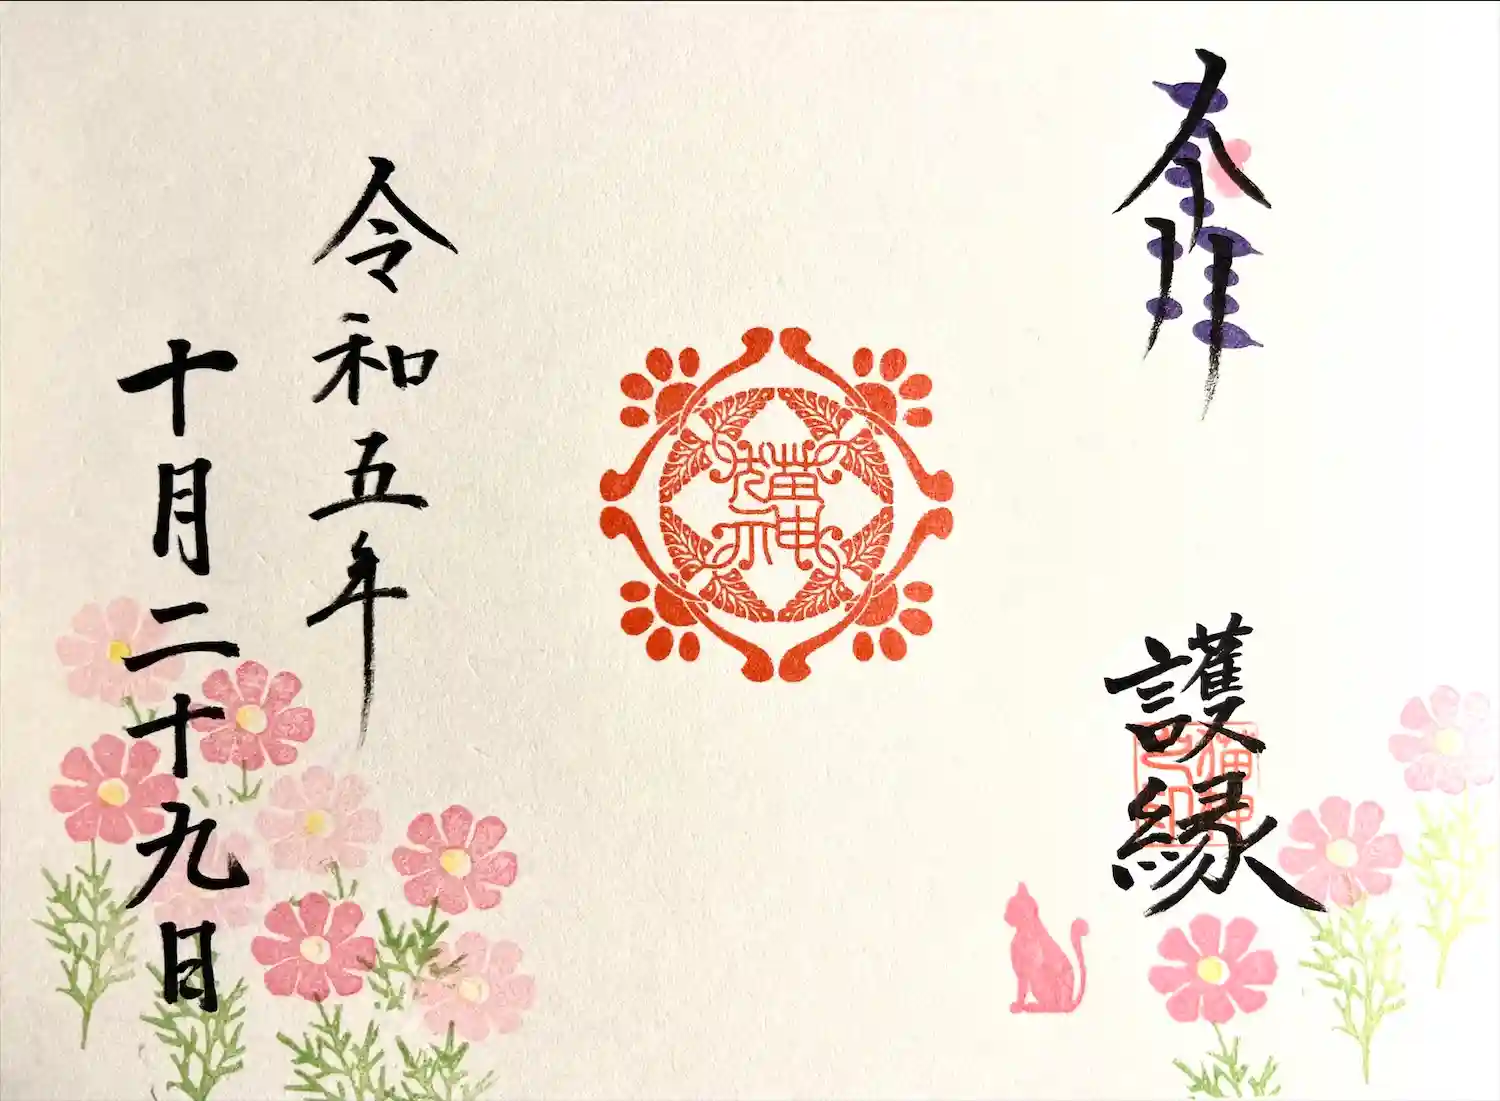 奉拝
護縁
猫神
令和五年
十月二十九日